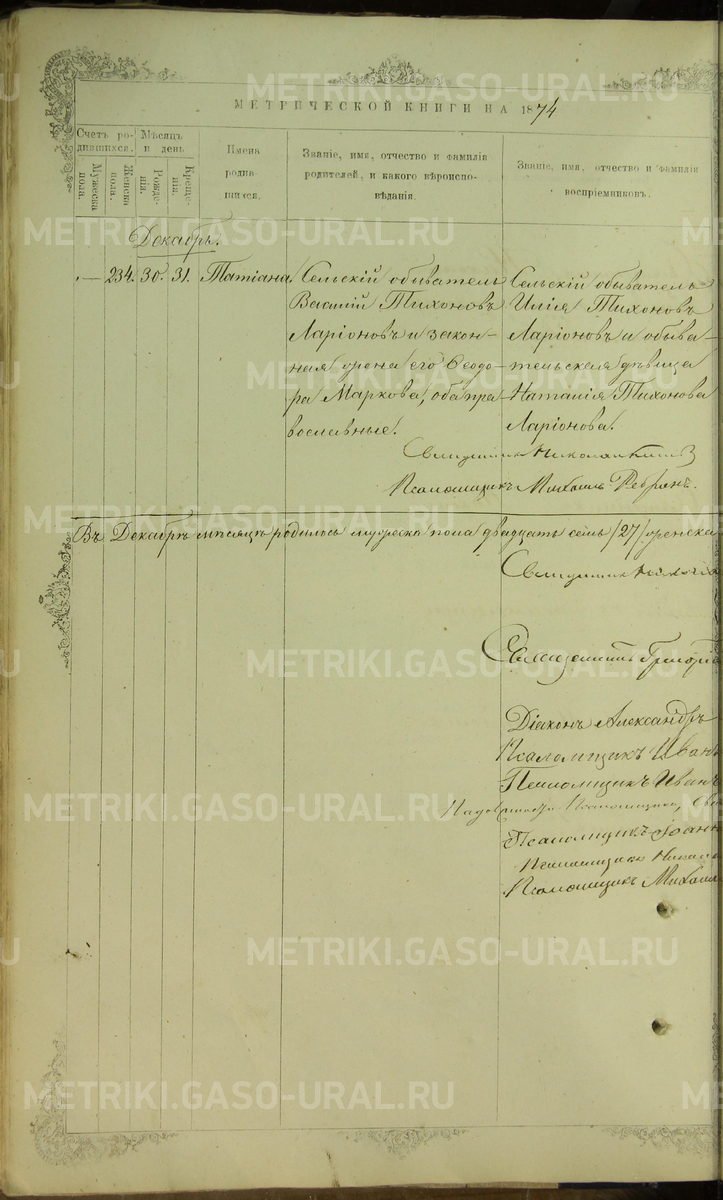 МЕТРИЧЕСКОЙ КНИГИ НА 1874
Счетъ ро-
дившихся.
Мужеска
пола.
Женска
пола.
Мѣсяцъ
и день
Рожде-
нія.
Креще-
нія.
Имена
родив-
шихся.
Званіе, имя, отчество и фамилія
родителей, и какого вѣроиспо-
вѣданія.
Званіе, имя, отчество и фамилія
воспріемниковъ.
Декабрь.
— 234. 30. 31. Татіана.
Сельскій обыватель
Василій Тихоновъ
Ларіоновъ и закон-
ная жена его Ѳеодо-
ра Маркова, оба пра-
вославные.
Сельскій обыватель
Илія Тихоновъ
Ларіоновъ и обыва-
тельская дѣвица
Наталія Тихонова
Ларіонова.
Священникъ Николай
Псаломщикъ Михаилъ
Въ Декабрѣ мѣсяцѣ родилось мужеска пола двадцать семь /27/ женска
Священникъ
Священникъ Григорій
Діаконъ Александръ
Псаломщикъ Иван
Псаломщикъ Иванъ
Псаломщикъ Іоанн
Псаломщикъ Никола
Псаломщикъ Михаил
METRIKI.GASO-URAL.RU